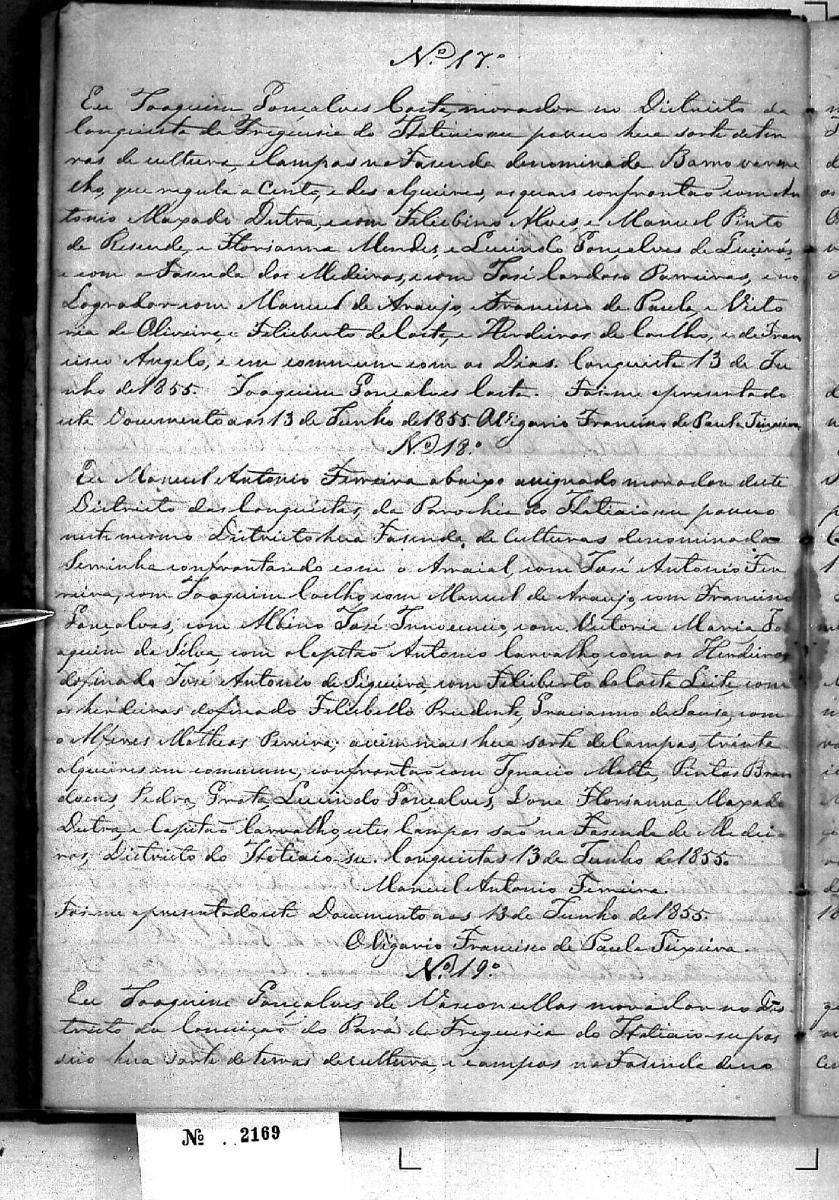 N.º 17.º
Eu Joaquim Gonçalves Costa morador no Districto da
Conquista da Freguesia do Itatiaiossu possuo hua sorte de ter
ras de cultura, e Campos na Fazenda denominada Barro verme
lho, que regula a Cento, e des alqueires, os quais confrontão com An
tonio Maxado Dutra, e com Felisbino Alves, e Manuel Pinto
de Resende, e Florianna Mendes, e Lucindo Gonçalves de
e com a Fasenda dos Medeiros, e com José Cardoso Parreiras, e no
Logrador com Manuel de Araujo, e Francisco de Paula, e Victo
ria de Oliveira, e Felisberto da Costa, e Herdeiros de Coelho, e de Fran
cisco Angelo, e em commum com os Dias. Conquista 13 de Ju
nho de 1855. Joaquim Gonçalves Costa. Foi-me apresentado
este Documento aos 13 de Junho de 1855. O Vigario Francisco de Paula Teixeira
N.º 18.º
Eu Manuel Antonio Ferreira abaixo assignado morador deste
Districto das Conquistas, da Parochia do Itatiaiossu possuo
neste mesmo Districto hua Fasenda, de Culturas denominada
Serrinha confrontando com o Arraial, com José Antonio Fer
reira, com Joaquim Coelho, com Manuel de Araujo, com Francisco
Gonçalves, com Albino José Innocencio, com Victoria Maria, Jo
aquim da Silva, com o Capitão Antonio Carvalho, com os Herdeiros
do finado José Antonio de Siqueira, com Felisberto da Costa Leite, com
os herdeiros do finado Felisbello Prudente, Gracianno de Sousa, com
o Alferes Matheos Pereira; assim mais hua sorte de Campos, trinta
alqueires em commum, confrontão com Ignacio Malta, Pintos Bran
doens, Pedra Grota, Lucindo Gonçalves, Dona Florianna Maxado
Dutra, e Capitão Carvalho, estes Campos são na Fasenda de Medei
ros, Districto do Itatiaiossu. Conquistas 13 de Junho de 1855.
Manuel Antonio Ferreira.
Foi-me apresentado este Documento aos 13 de Junho de 1855.
O Vigario Francisco de Paula Teixeira.
N.º 19.º
Eu Joaquim Gonçalves de Vasconcellos morador no Dis
tricto da Conceição do Pará da Freguesia do Itatiaiossu pos
suo hua sorte de terras de cultura, e campos na Fasenda deno
№ 2169